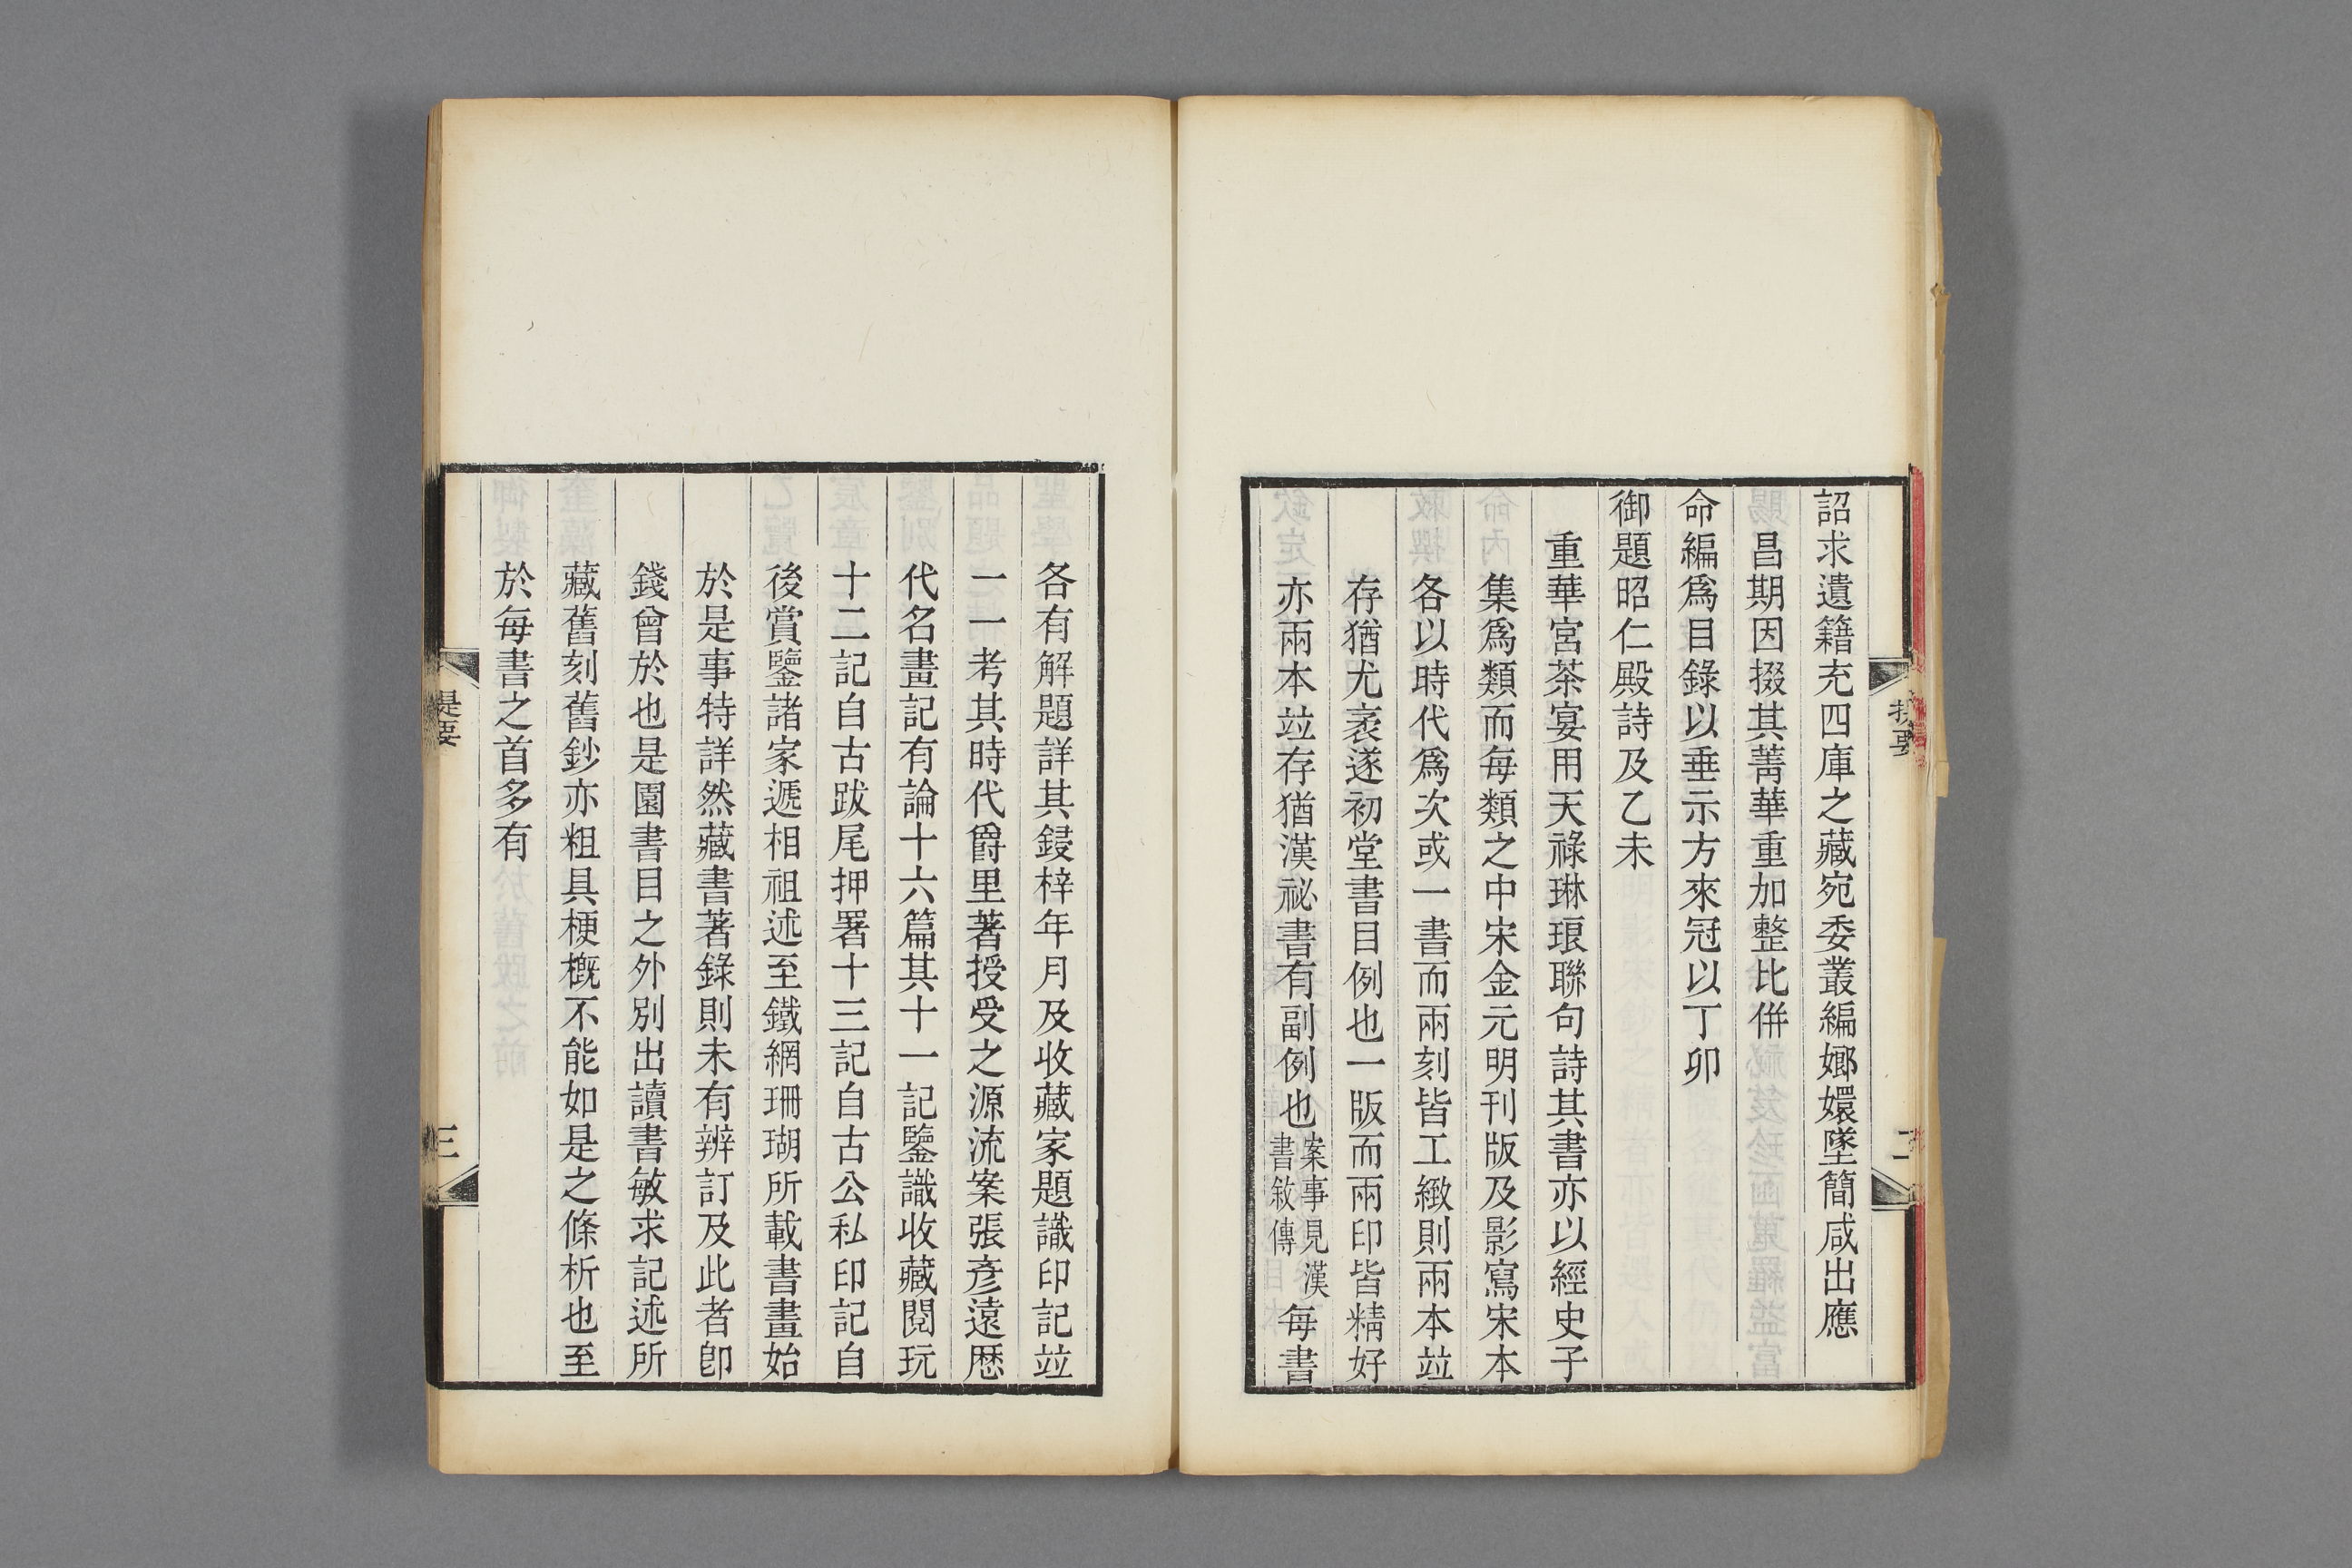 詔求遺籍充四庫之藏宛委叢編嫏嬛墜簡咸出應
昌期因掇其菁華重加整比併
命編爲目錄以垂示方來冠以丁卯
御題昭仁殿詩及乙未
重華宮茶宴用天祿琳琅聯句詩其書亦以經史子
集爲類而每類之中宋金元明刊版及影寫宋本
各以時代爲次或一書而兩刻皆工緻則兩本竝
存猶尤袤遂初堂書目例也一版而兩印皆精好
亦兩本竝存猶漢祕書有副例也案事見漢書敘傳每書
二
各有解題詳其鋟梓年月及收藏家題識印記竝
一一考其時代爵里著授受之源流案張彥遠歴
代名畫記有論十六篇其十一記鑒識收藏閱玩
十二記自古跋尾押署十三記自古公私印記自
後賞鑒諸家遞相祖述至鐵網珊瑚所載書畫始
於是事特詳然藏書著錄則未有辨訂及此者卽
錢曾於也是園書目之外別出讀書敏求記述所
藏舊刻舊鈔亦粗具梗概不能如是之條析也至
於每書之首多有
提要
三